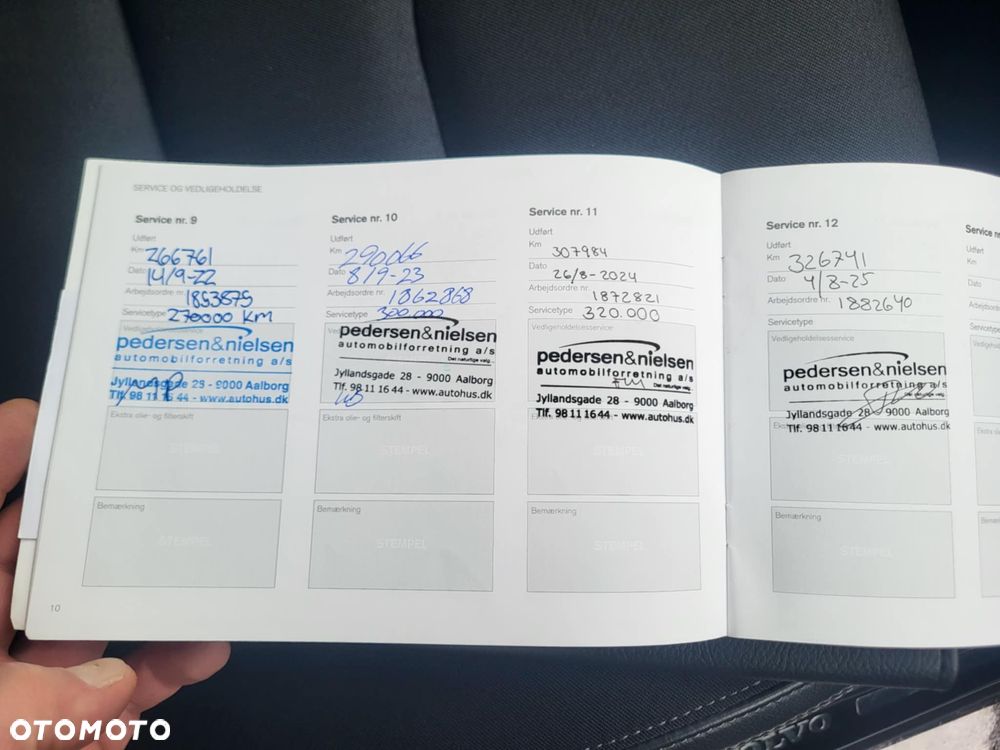 SERVICE OG VEDLIGEHOLDELSE
Service nr. 9
Udført
Km 266761
Dato 14/9-22
Arbejdsordre nr. 1853875
Servicetype 270000 KM
Vedligeholdelsesservice
pedersen&nielsen
automobilforretning a/s
Jyllandsgade 28 - 9000 Aalborg
Tlf. 98 11 16 44 - www.autohus.dk
Ekstra olie- og filterskift
STEMPEL
Bemærkning
STEMPEL
10
Service nr. 10
Udført
Km 290066
Dato 8/9-23
Arbejdsordre nr. 1862868
Servicetype 300.000
pedersen&nielsen
automobilforretning a/s
Det naturlige valg...
Jyllandsgade 28 - 9000 Aalborg
Tlf. 98 11 16 44 - www.autohus.dk
Ekstra olie- og filterskift
STEMPEL
Bemærkning
STEMPEL
Service nr. 11
Udført
Km 307984
Dato 26/8-2024
Arbejdsordre nr. 1872821
Servicetype 320.000
Vedligeholdelsesservice
pedersen&nielsen
automobilforretning a/s
Det naturlige valg...
Jyllandsgade 28 - 9000 Aalborg
Tlf. 98 11 16 44 - www.autohus.dk
STEMPEL
Bemærkning
STEMPEL
Service nr. 12
Udført
Km 326741
Dato 4/8-25
Arbejdsordre nr. 1882640
Servicetype
Vedligeholdelsesservice
pedersen&nielsen
automobilforretning a/s
Det naturlige valg...
Jyllandsgade 28 - 9000 Aalborg
Tlf. 98 11 16 44 - www.autohus.dk
STEMPEL
Bemærkning
STEMPEL
Service
Udført
Km
Dato
OTOMOTO